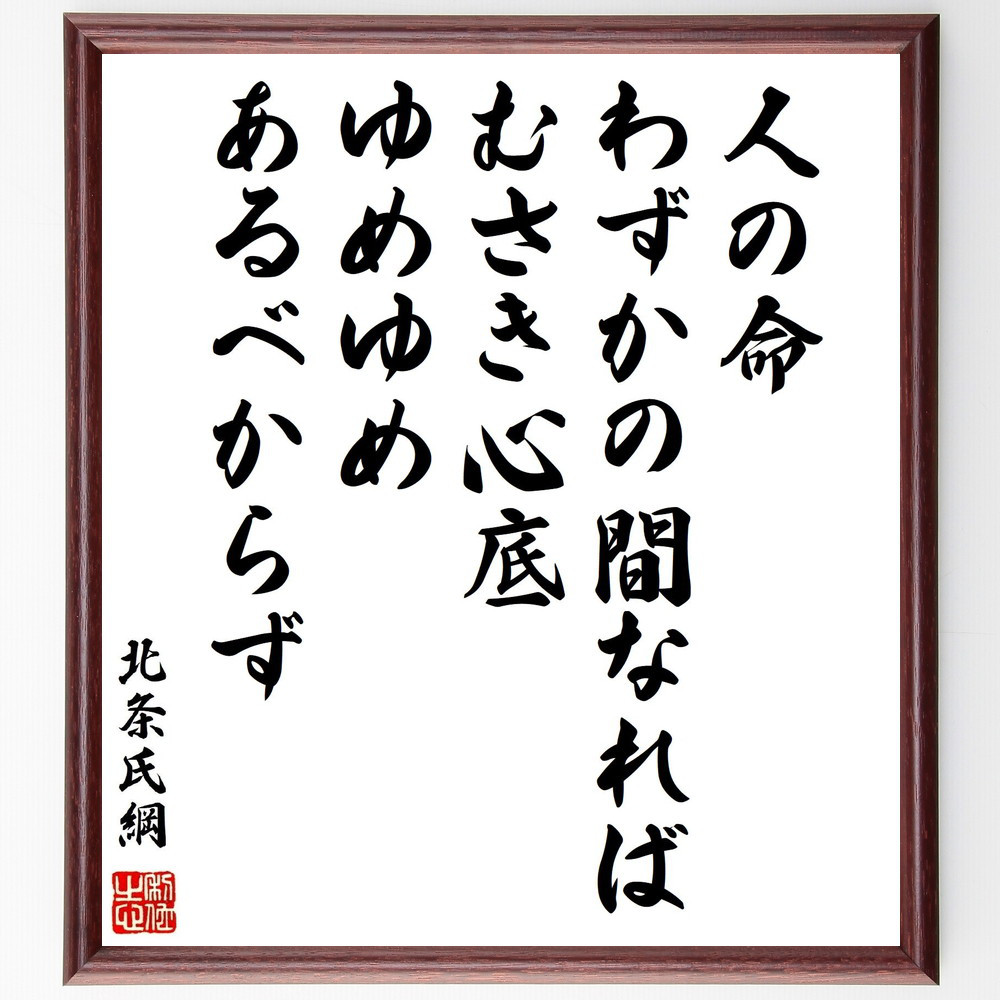 人の命
わずかの間なれば
むさき心底
ゆめゆめ
あるべからず
北条氏綱